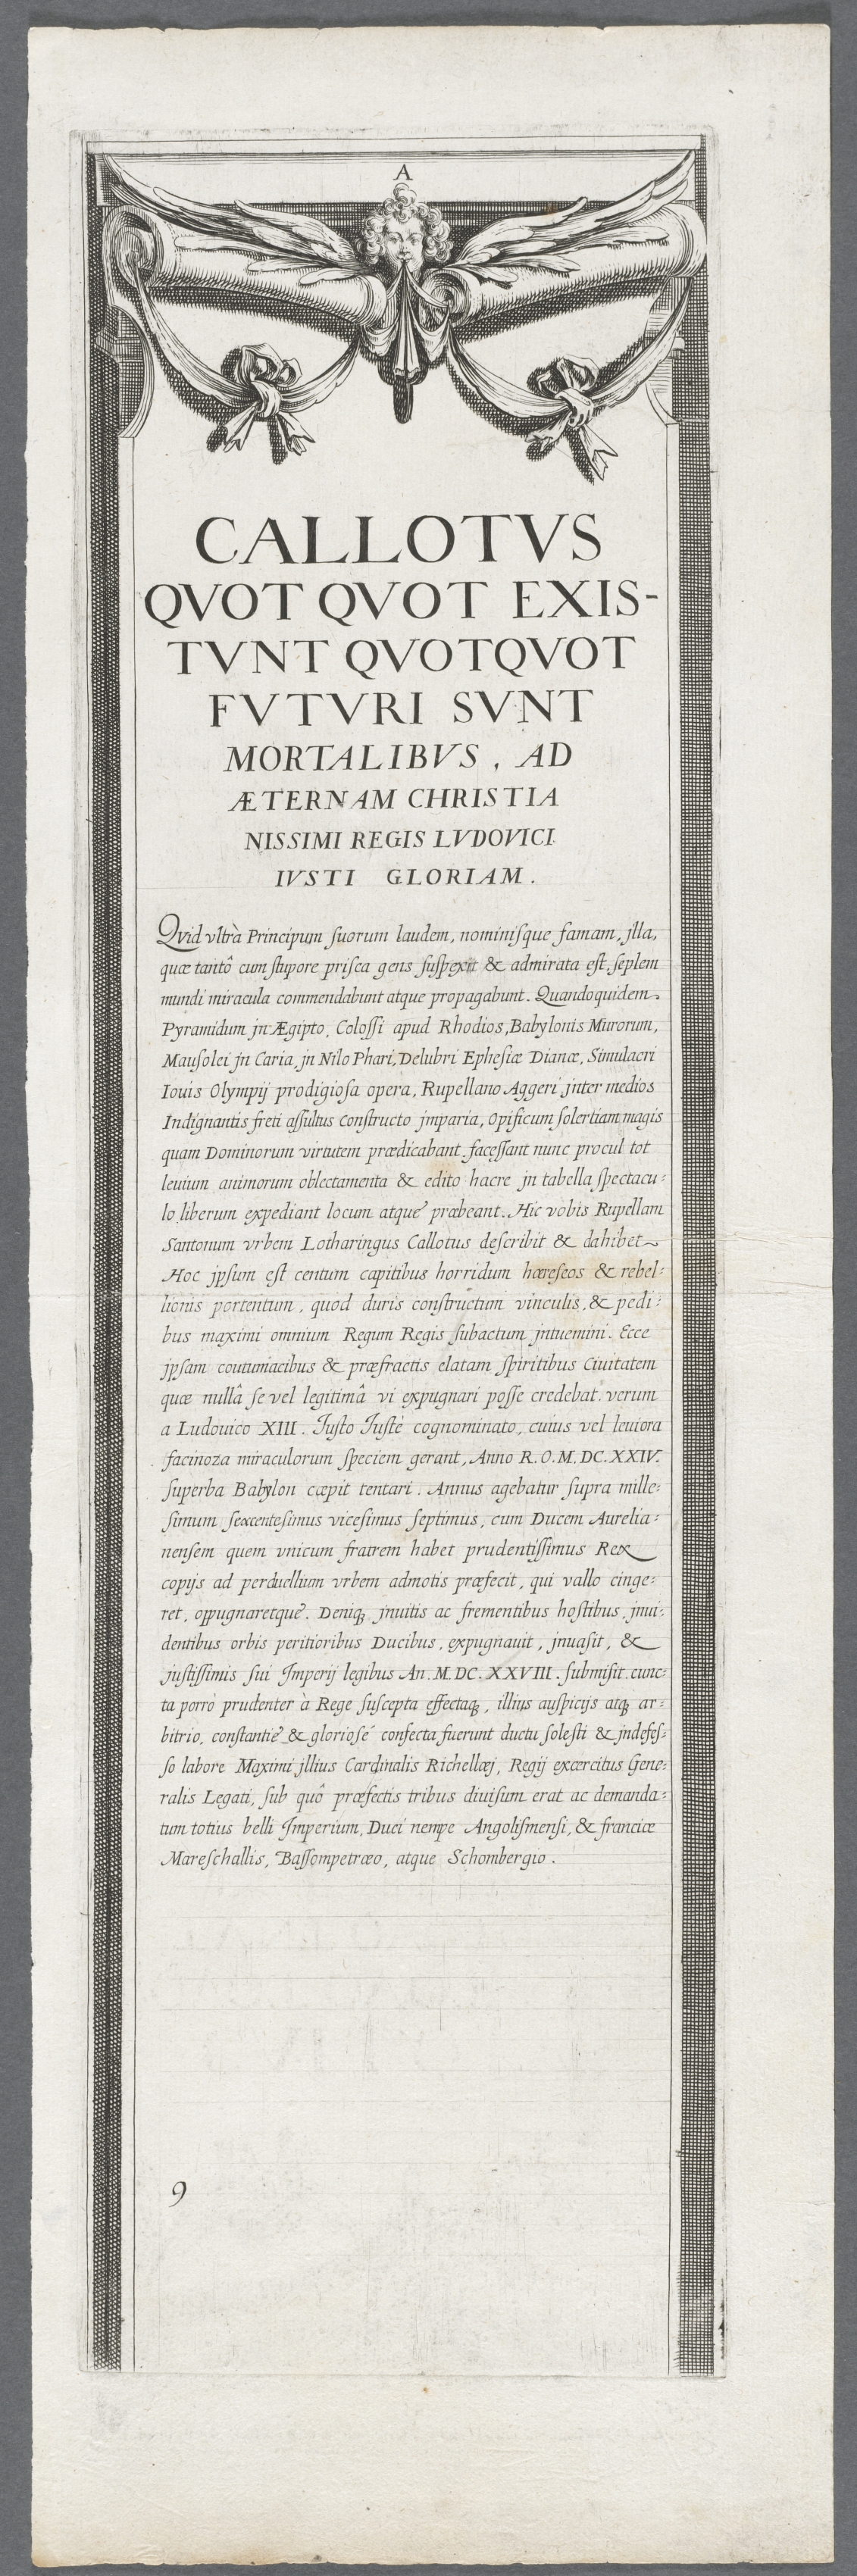 A
CALLOTVS
QVOT QVOT EXIS-
TVNT QVOTQVOT
FVTVRI SVNT
MORTALIBVS, AD
ÆTERNAM CHRISTIA
NISSIMI REGIS LVDOVICI
IVSTI GLORIAM.
Qvid vltrà Principum suorum laudem, nominisque famam, jlla,
quæ tantô cum stupore prisca gens suspexit & admirata est, septem
mundi miracula commendabunt atque propagabunt. Quandoquidem
Pyramidum jn Ægipto, Colossi apud Rhodios, Babylonis Murorum,
Mausolei jn Caria, jn Nilo Phari, Delubri Ephesiæ Dianæ, Simulacri
Iouis Olympij prodigiosa opera, Rupellano Aggeri jnter medios
Indignantis freti assultus Constructo jmparia, Opificum solertiam magis
quam Dominorum virtutem prædicabant, facessant nunc procul tot
leuium animorum oblectamenta & edito hacre jn tabella spectacu:
lo liberum expediant locum atque præbeant. Hic vobis Rupellam
Santonum vrbem Lotharingus Callotus describit & dahibet
Hoc jpsum est centum capitibus horridum hæreseos & rebel:
lionis portentum, quod duris constructum vinculis, & pedi:
bus maximi omnium Regum Regis subactum jntuemini. Ecce
jpsam coutumacibus & præfractis elatam spiritibus Ciuitatem
quæ nullâ se vel legitimâ vi expugnari posse credebat. verum
a Ludouico XIII. Justo Justè cognominato, cuius vel leuiora
facinoza miraculorum speciem gerant, Anno R.O.M.DC.XXIV.
superba Babylon cæpit tentari. Annus agebatur supra mille:
simum, sexcentesimus vicesimus septimus, cum Ducem Aurelia:
nensem quem vnicum fratrem habet prudentissimus Rex
copijs ad perduellium vrbem admotis præfecit, qui vallo cinge:
ret, oppugnaretque. Deniq, jnuitis ac frementibus hostibus, jnui:
dentibus orbis peritioribus Ducibus, expugnauit, jnuasit, &
justissimis sui Jmperij legibus An. M.DC.XXVIII. submisit. cunc:
ta porrò prudenter à Rege suscepta effectaq, illius auspicijs atq, ar:
bitrio, constantiè & gloriosé confecta fuerunt ductu solesti & jndefes:
so labore Maximi jllius Cardinalis Richellæj, Regij exærcitus Gene:
ralis Legati, sub quô præfectis tribus diuisum erat ac demanda:
tum totius belli Jmperium, Duci nempe Angolismensi, & franciæ
Mareschallis, Bassompetræo, atque Schombergio.
9